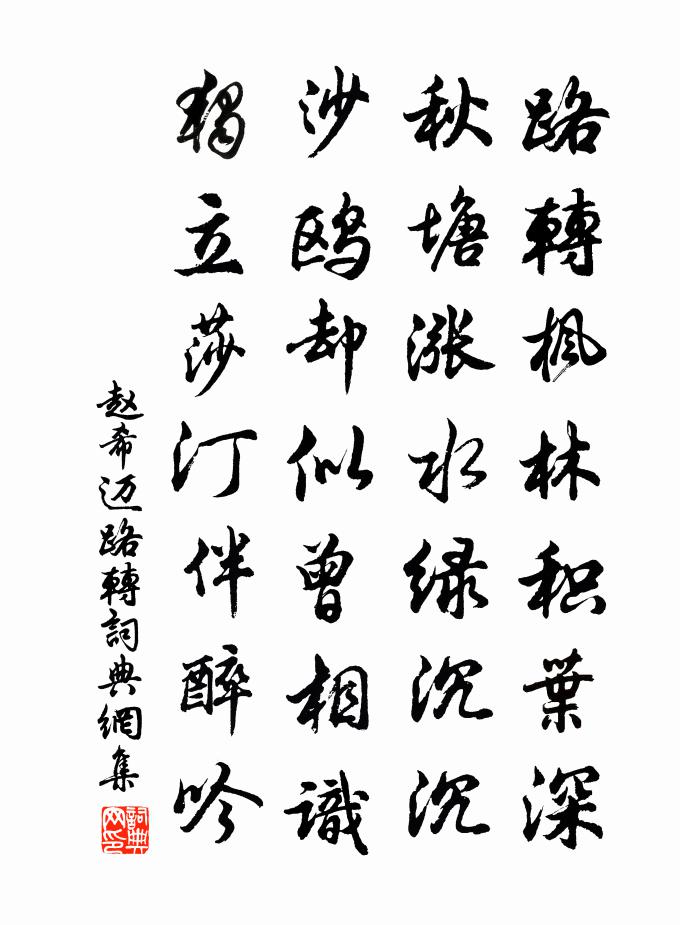 路轉楓林积葉深
秋塘漲水绿沉沉
沙鸥却似曾相識
獨立莎汀伴醉吟
赵希迈路轉詞典網集
詞典网印